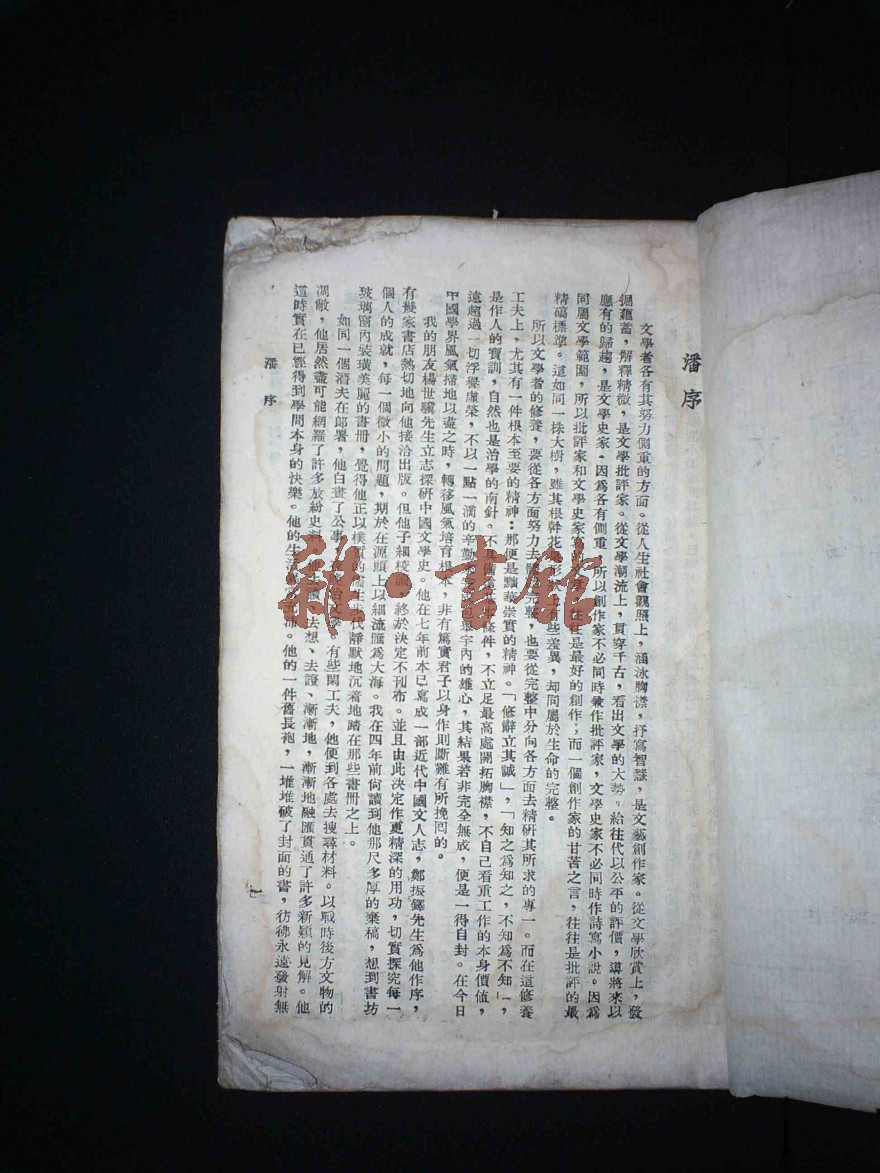 潘序
文學者各有其努力側重的方面。從人生社會觀照上,涵泳胸襟,抒寫智慧,是文藝創作家。從文學欣賞上,發
掘蘊蓄,解釋精微,是文學批評家。從文學潮流上,貫穿千古,看出文學的大勢。給往代以公平的評價,導將來以
應有的歸趨,是文學史家。因為各有側重,所以創作家不必同時兼作批評家,文學史家不必同時作詩寫小說。因為
同屬文學範圍,所以批評家和文學史家寫的文章,往往是最好的創作;而一個創作家的甘苦之言,往往是批評的最
精礭標準。這如同一株大樹,雖其根幹花果形體上有些差異,却同屬於生命的完整。
所以文學者的修養,要從各方面努力去體驗完整,也要從完整中分向各方面去精研其所求的專一。而在這修養
工夫上,尤其有一件根本至要的精神:那便是黜華崇實的精神。「修辭立其誠」,「知之為知之,不知為不知」,
是作人的寶訓,自然也是治學的南針。不具備這樣條件,不立足最高處開拓胸襟,不自己看重工作的本身價值,
遠超過一切浮譽虛榮,不以一點一滴的辛勤 宇內的雄心,其結果若非完全無成,便是一得自封。在今日
中國學界風氣掃地以盡之時,轉移風氣培育根本,非有篤實君子以身作則斷難有所挽囘的。
我的朋友楊世驥先生立志探硏中國文學史。他在七年前本已寫成一部近代中國文人志,鄭振鐸先生為他作序,
有幾家書店熱切地向他接洽出版。但他子細校讀,終於決定不刊布。並且由此決定作更精深的用功,切實探究每一
個人的成就,每一個微小的問題,期於在源頭上以細流匯為大海。我在四年前尙讀到他那尺多厚的棄稿,想到書坊
玻璃窗內裝璜美麗的書冊,覺得他正以樸質的 生代靜默地沉着地踏在那些書冊之上。
如同一個潛夫在郎署,他白晝了公事 治文學 有些閑工夫,他便到各處去搜尋材料。以戰時後方文物的
凋敝,他居然盡可能網羅了許多放紛史料。他去讀、去想、去證、漸漸地,漸漸地融匯貫通了許多新穎的見解。他
這時實在已經得到學問本身的快樂。他的生活 沛。他的一件舊長袍,一堆堆破了封面的書,彷彿永遠發射無
潘序
一
雜·書館